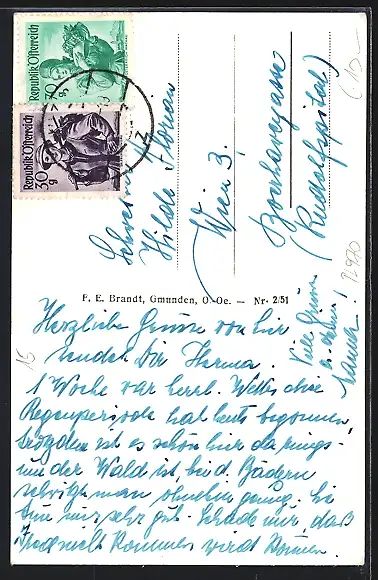 Republik Österreich
Republik Österreich
30 g
Schwester
Hilde Florian
Wien 3.
Boerhavegasse
(Rudolfspital)
F. E. Brandt, Gmunden, O.-Oe. — Nr. 2/51
Herzliche Grüsse von hier
sendet Dir Herma.
1 Woche war herrl. Wetter, die
Regenperiode hat heute begonnen,
trotzdem ist es schön hier da rings-
um der Wald ist, bei d. Bädern
schwitzt man ohnehin genug. Es
tun mir sehr gut. Schade nur, daß
nicht kommen wird können.
Viele Grüsse